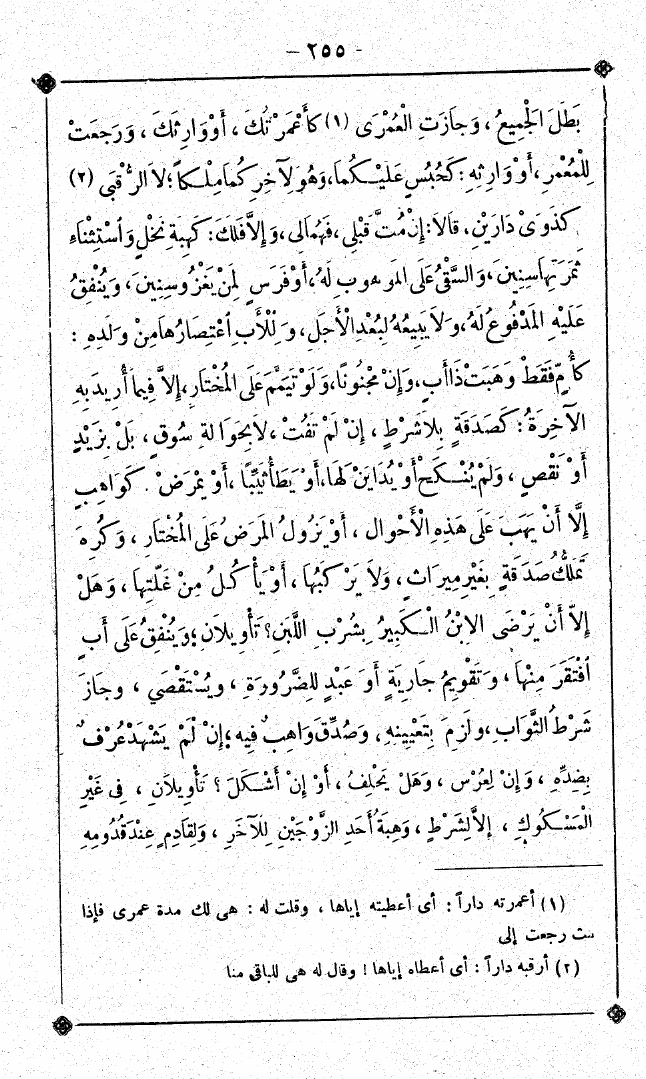 - ٢٥٥ -
بَطَلَ الْجَمِيعُ ، وَجَازَتِ الْعُمْرَى (١) كَأَعْمَرْتُكَ ، أَوْ وَارِثَكَ ، وَرَجَعَتْ
لِلْمُعْمِرِ ، أَوْ وَارِثِهِ : كَحُبُسٍ عَلَيْكُمَا ، وَهُوَ لِآخِرِ كُمَا مِلْكاً ؛ لاَ الرُّقْبَى (٢)
كَذَوِى دَارَيْنِ ، قَالاَ : إِنْ مُتَّ قَبْلِى ، فَهُمَالِى ، وَإِلاَّ فَلَكَ : كَهِبَةِ نَخْلٍ وَاسْتِثْنَاءِ
ثَمَرَتِهَا سِنِينَ ، وَالسَّقْىُ عَلَى الْمَوْهُوبِ لَهُ ، أَوْ فَرَسٍ لِمَنْ يَغْزُو سِنِينَ ، وَيُنْفِقُ
عَلَيْهِ الْمَدْفُوعُ لَهُ ، وَلاَ يَبِيعُهُ لِبُعْدِ الْأَجَلِ ، وَلِلْأَبِ اعْتِصَارُهَا مِنْ وَلَدِهِ :
كَأُمٍّ فَقَطْ وَهَبَتْ ذَا أَبٍ ، وَإِنْ مَجْنُونًا ، وَلَوْ تَيَتَّمَ عَلَى الْمُخْتَارِ ، إِلاَّ فِيمَا أُرِيدَ بِهِ
الْآخِرَةُ : كَصَدَقَةٍ بِلاَ شَرْطٍ ، إِنْ لَمْ تَفُتْ ، لاَ بِحَوَالَةِ سُوقٍ ، بَلْ بِزَيْدٍ
أَوْ نَقْصٍ ، وَلَمْ يُنْكَحْ أَوْ يُدَايَنْ لَهَا ، أَوْ يَطَأْ ثَيِّبًا ، أَوْ يَمْرَضْ . كَوَاهِبٍ
إِلَّا أَنْ يَهَبَ عَلَى هَذِهِ الْأَحْوَالِ ، أَوْ يَزُولُ الْمَرَضُ عَلَى الْمُخْتَارِ ، وَكُرِهَ
تَمَلُّكُ صَدَقَةٍ بِغَيْرِ مِيرَاثٍ ، وَلاَ يَرْكَبُهَا ، أَوْ يَأْكُلُ مِنْ غَلَّتِهَا ، وَهَلْ
إِلاَّ أَنْ يَرْضَى الاِبْنُ الْكَبِيرُ بِشُرْبِ اللَّبَنِ ؟ تَأْوِيلاَنِ ؛ وَيُنْفِقُ عَلَى أَبٍ
افْتَقَرَ مِنْهَا ، وَتَقْوِيمُ جَارِيَةٍ أَوْ عَبْدٍ لِلضَّرُورَةِ ، وَيُسْتَقْصَى ، وَجَازَ
شَرْطُ الثَّوَابِ ، وَلَزِمَ بِتَعْيِينِهِ ، وَصُدِّقَ وَاهِبٌ فِيهِ ؛ إِنْ لَمْ يَشْهَدْ عُرْفٌ
بِضِدِّهِ ، وَإِنْ لِعُرْسٍ ، وَهَلْ يَحْلِفُ ، أَوْ إِنْ أَشْكَلَ ؟ تَأْوِيلاَنِ ، فِى غَيْرِ
الْمَسْكُوكِ ، إِلاَّ لِشَرْطٍ ، وَهِبَةُ أَحَدِ الزَّوْجَيْنِ لِلْآخَرِ ، وَلِقَادِمٍ عِنْدَ قُدُومِهِ
(١) أعمرته داراً : أى أعطيته إياها ، وقلت له : هى لك مدة عمرى فإذا
مت رجعت إلى
(٢) أرقبه داراً : أى أعطاه إياها ! وقال له هى للباقى منا